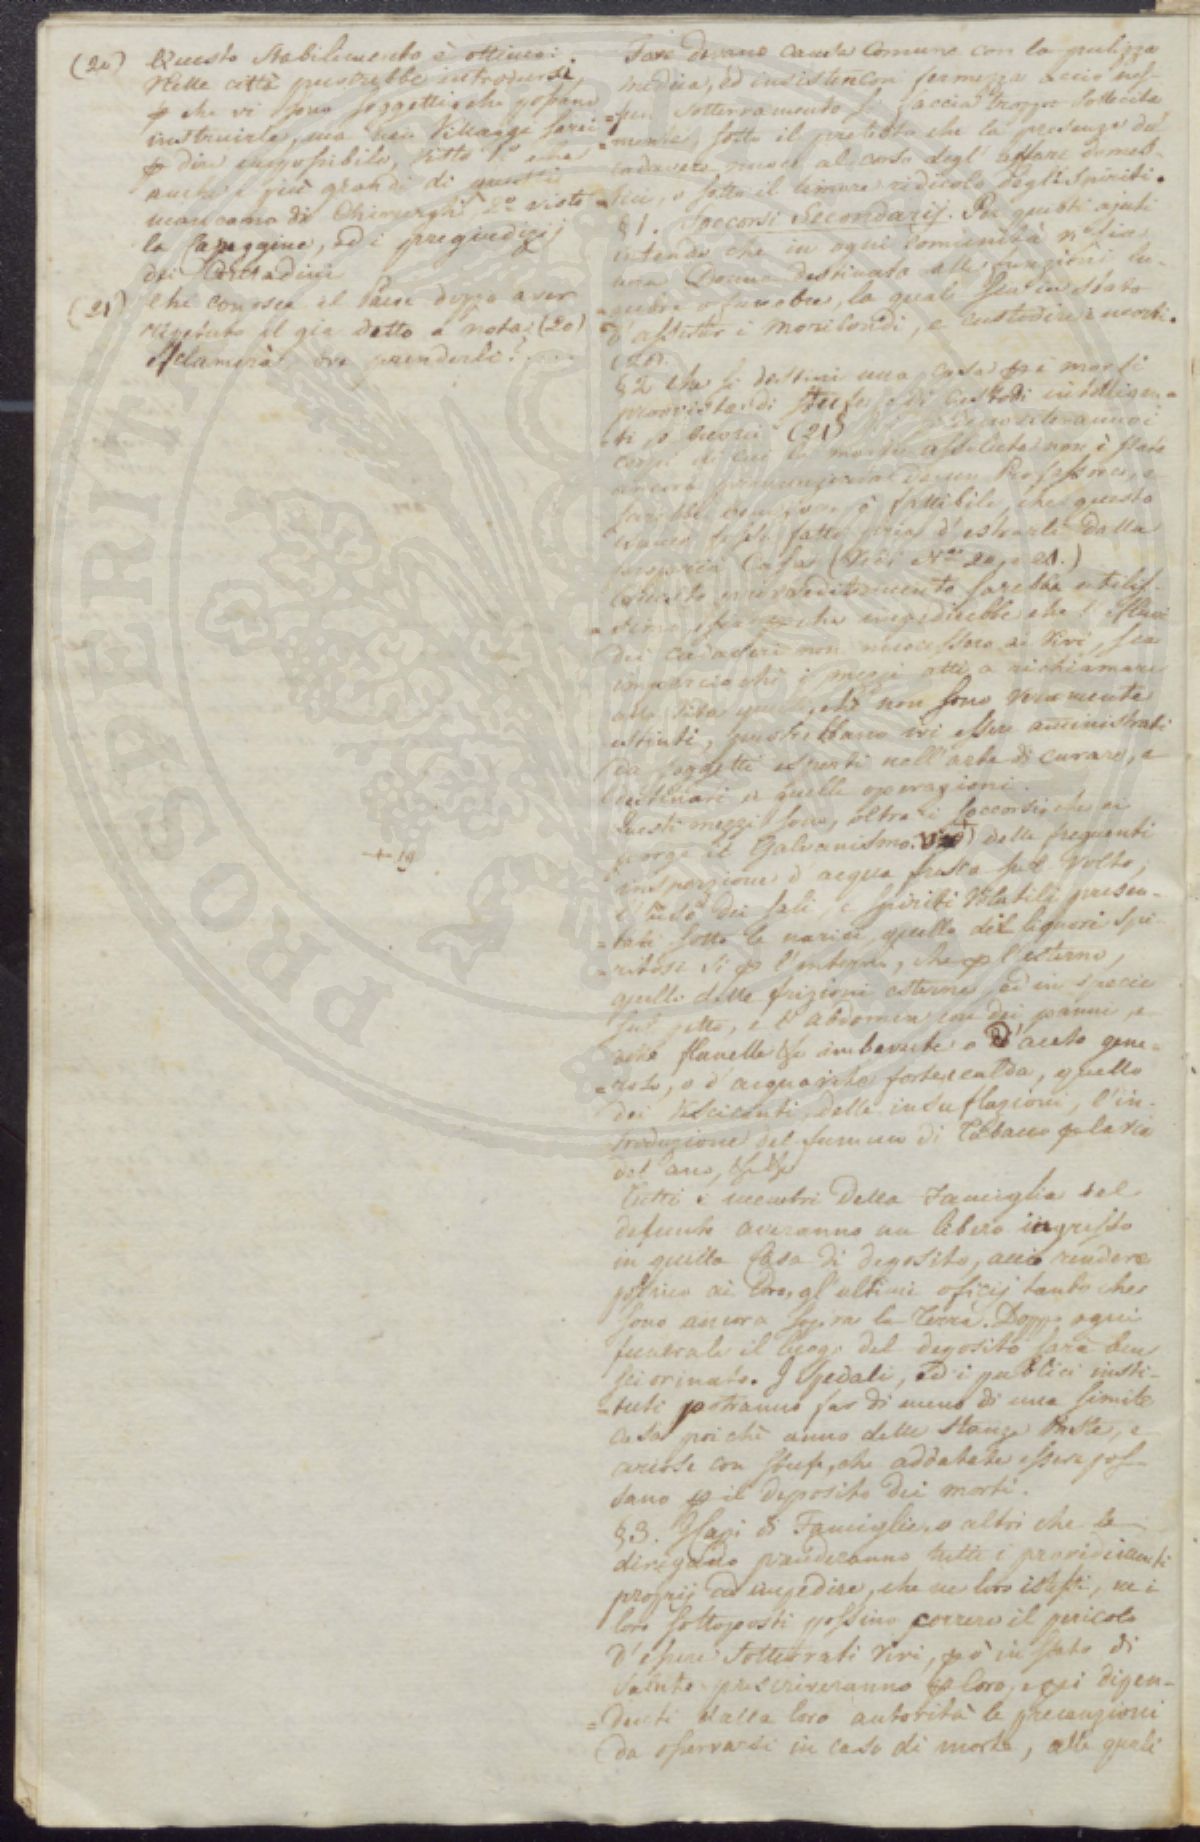 (20) Questo stabilimento è ottimo:
Nelle città potrebbe introdursi,
che vi sono soggetti che possano
instruirle, ma nei Villaggi sarei
dire impossibile, visto che
anche i più grandi di questi
mancano di Chirurghi, 2° visto
la ed i pregiudizij
dei Contadini
(21) Chi conosce il Paese doppo aver
ripetuto il già detto a nota (20)
esclamerà, ove prenderli? ....
+ 19
PROSPERITÀ
Fare devano causa comune con la pulizia
medica, ed insistere con fermezza acciò nes-
=sun sotterramento si faccia troppo sollecita
=mente, sotto il pretesto che la presenza del
cadavere nuoce al corso degl' affari domes-
=tici, o sotto il timore ridicolo degli Spiriti.
§ 1. Soccorsi Secondarij. Per questi ajuti
intendo che in ogni Comunità vi sia
una Donna destinata alle funzioni lu-
=gubri o funebri, la quale sia in stato
d'assister i moribondi, e custodire i morti.
(20).
§ 2 Che si destini una Casa pei morti
provvista di stufe, e di Custodi intelligen=
=ti, e buoni (21) depositeranno i
corpi di cui la morte assoluta non è stata
ancora pronunziata da un Professore, e
sarebbe fattibile, che questo
esame fosse fatto pria d'estrarli dalla
propria Casa (Vedi Nri 20, e 21.)
Questo provvedimento sarebbe utilis-
=simo, perchè impedirebbe che l'
dei cadaveri non nuocessero ai Vivi, sia
imperciochè i mezzi atti a richiamare
alla vita quelli, che non sono veramente
estinti, potrebbano ivi essere aministrati
da soggetti esperti nell'arte di curare, e
destinari a quelle operazioni.
Questi mezzi sono, oltre i soccorsi che ci
porge il Galvanismo, delle frequenti
inspersioni d'acqua fresca sul Volto,
l'uso dei sali, e spiriti Volatili presen-
=tati sotto le narici, quello dei liquori spi-
=ritosi sì p l'interno, che p l'esterno,
quello delle frizioni esterne ed in specie
sul petto, e l'abdomen con dei panni, e
delle flanelle imbevute o d'aceto gene=
=roso, o d'acquavite forte, e calda, quello
dei Vescicanti, delle insuflazioni, l'in-
troduzione del fummo di Tabacco p la via
del'ano,
Tutti i membri della Famiglia del
defunto averanno un libero ingresso
in quella Casa di deposito, acciò rendere
possino ai loro, gl'ultimi oficij tanto che
sono ancora sopra la Terra. Doppo ogni
funerale il luogo del deposito sarà ben
sciorinato. I Spedali, ed i publici insti-
=tuti potranno far di meno di una simile
Casa poichè anno delle stanze Vaste, e
ariose con stufe, che addatate essere pos-
sano p il deposito dei morti.
§ 3. I Capi di Famiglie, o altri che le
dirigano prenderanno tutti i providimenti
proprij ad impedire, che ne loro istessi, ne i
loro sottoposti possino correre il pericolo
d'essere sotterrati vivi, in stato di
salute prescriveranno p loro, e pei dipen-
=denti dalla loro autorità le precauzioni
da osservarsi in caso di morte, alle quali